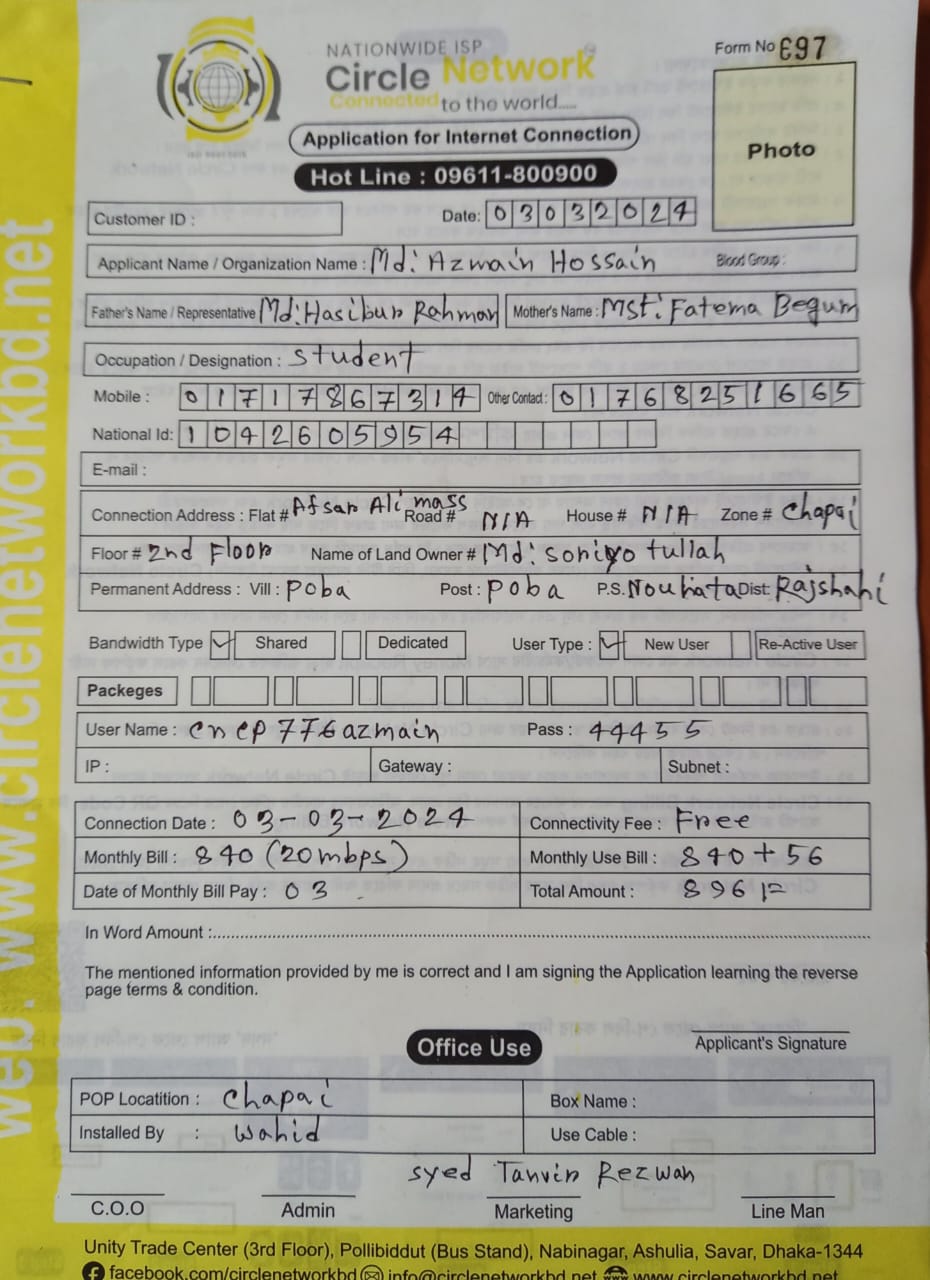 NATIONWIDE ISP
Circle Network
Connected to the world.....
Application for Internet Connection
Hot Line : 09611-800900
Form No 697
Photo
Customer ID :
Date: 03032024
Applicant Name / Organization Name : Md: Azmain Hossain Blood Group :
Father's Name / Representative Md: Hasibur Rahman Mother's Name : Mst: Fatema Begum
Occupation / Designation : Student
Mobile : 01717867314 Other Contact : 01768251665
National Id: 1042605954
E-mail :
Connection Address : Flat # Afsar Ali mass Road # N/A House # N/A Zone # Chapai
Floor # 2nd Floor Name of Land Owner # Md:
Permanent Address : Vill : Poba Post : Poba P.S. Nouhata Dist: Rajshahi
Bandwidth Type Shared Dedicated User Type : New User Re-Active User
Packeges
User Name : cncp776azmain Pass : 44455
IP : Gateway : Subnet :
Connection Date : 03-03-2024 Connectivity Fee : Free
Monthly Bill : 840 (20mbps) Monthly Use Bill : 840 + 56
Date of Monthly Bill Pay : 03 Total Amount : 896/=
In Word Amount :
The mentioned information provided by me is correct and I am signing the Application learning the reverse
page terms & condition.
Applicant's Signature
Office Use
POP Locatition : Chapai Box Name :
Installed By : Wahid Use Cable :
Syed Tanvir Rezwan
C.O.O Admin Marketing Line Man
Unity Trade Center (3rd Floor), Pollibiddut (Bus Stand), Nabinagar, Ashulia, Savar, Dhaka-1344
facebook.com/circlenetworkbd info@circlenetworkbd.net www.circlenetworkbd.net
web: www.circlenetworkbd.net